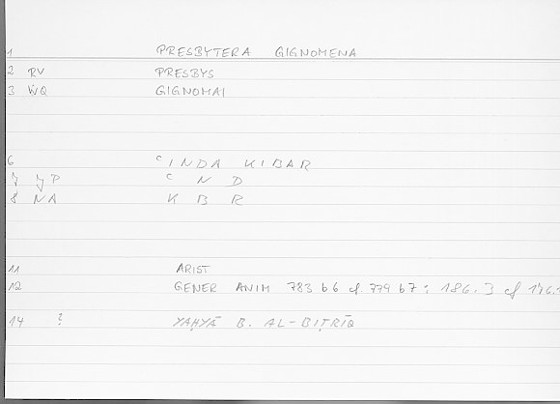 1 PRESBYTERA GIGNOMENA
2 RV PRESBYS
3 WQ GIGNOMAI
6 ʿINDA KIBAR
ʿ N D
8 NA K B R
11 ARIST
12 GENER ANIM 783 b6 cf 779 b7 : 186.3 cf 176.
14 ? YAḤYĀ B. AL-BIṬRĪQ